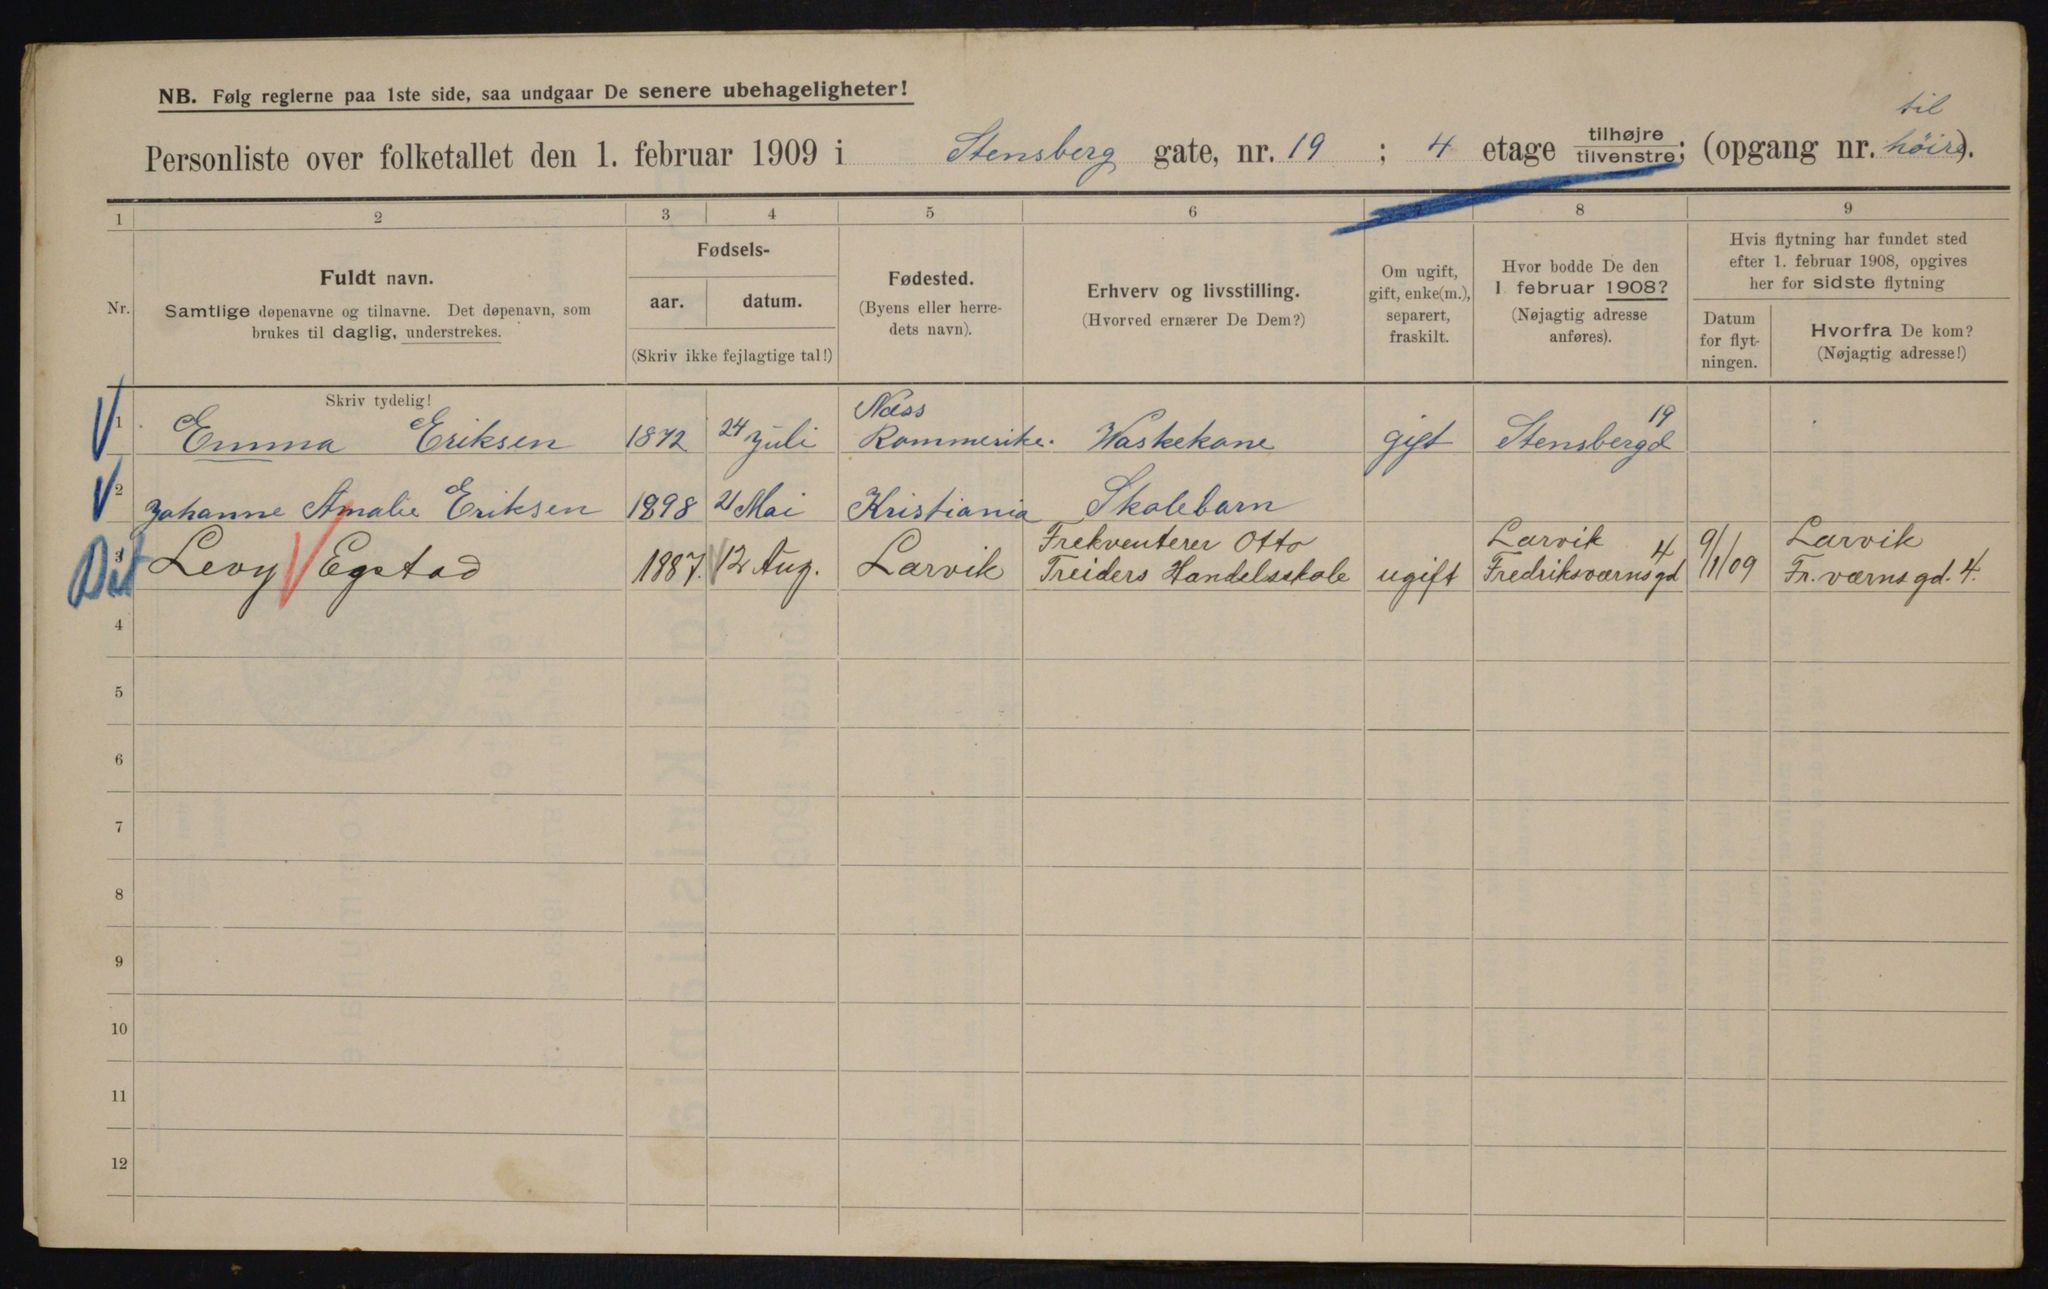 NB. Følg reglerne paa 1ste side, saa undgaar De senere ubehageligheter!
til
Personliste over folketallet den 1. februar 1909 i Stensberg gate, nr. 19 ; 4 etage tilhøjre/tilvenstre; (opgang nr. høire).
1 2 3 4 5 6 7 8 9
Nr.
Fuldt navn.
Samtlige døpenavne og tilnavne. Det døpenavn, som
brukes til daglig, understrekes.
Fødsels-
aar. datum.
(Skriv ikke fejlagtige tal!)
Fødested.
(Byens eller herre-
dets navn).
Erhverv og livsstilling.
(Hvorved ernærer De Dem?)
Om ugift,
gift, enke(m.),
separert,
fraskilt.
Hvor bodde De den
1 februar 1908?
(Nøjagtig adresse
anføres).
Hvis flytning har fundet sted
efter 1. februar 1908, opgives
her for sidste flytning
Datum
for flyt-
ningen.
Hvorfra De kom?
(Nøjagtig adresse!)
Skriv tydelig!
Næss 19
1 Emma Eriksen 1872 24 Juli Rommerike. Waskekone gift Stensbergd
2 Johanne Amalie Eriksen 1898 21 Mai Kristiania Skolebarn
Frekventerer Otto Larvik 4 Larvik
3 Levy Egstad 1887. 12 Aug. Larvik Treiders Handelsskole ugift Fredriksværnsgd 9/1/09 Fr. værnsgd. 4.
4
5
6
7
8
9
10
11
12